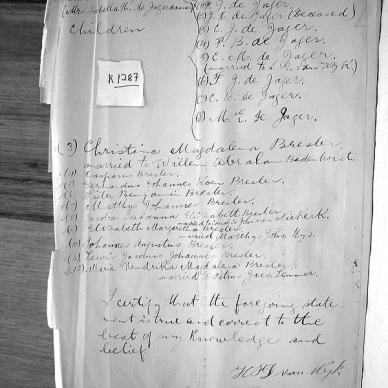 (Mrs. Isabella H. de Jager
Children
J. de Jager.
J. A. de Jager (Deceased)
C. J. de Jager.
P. B. de Jager.
C. M. de Jager.
(married to a van Wyk)
T. J. de Jager.
C. E. de Jager.
M. E. de Jager.
K 1287
(3) Christina Magdalena Bresler.
married to Willem Abraham Badenhorst.
Casparus Bresler.
Gerhardus Johannes Koen Bresler.
Pieter Benjamin Bresler.
Matthys Johannes Bresler.
Susanna Elizabeth Bresler
married Niekerk.
Elizabeth Margaretha Bresler
married Matthys Johs. Uys.
Johannes Augustus Bresler
Lewis Jacobus Johannes Bresler.
Maria Hendrika Magdalena Bresler.
married to Petrus Jacs.
I certify that the foregoing state
ment is true and correct to the
best of my knowledge and
belief
van Wyk